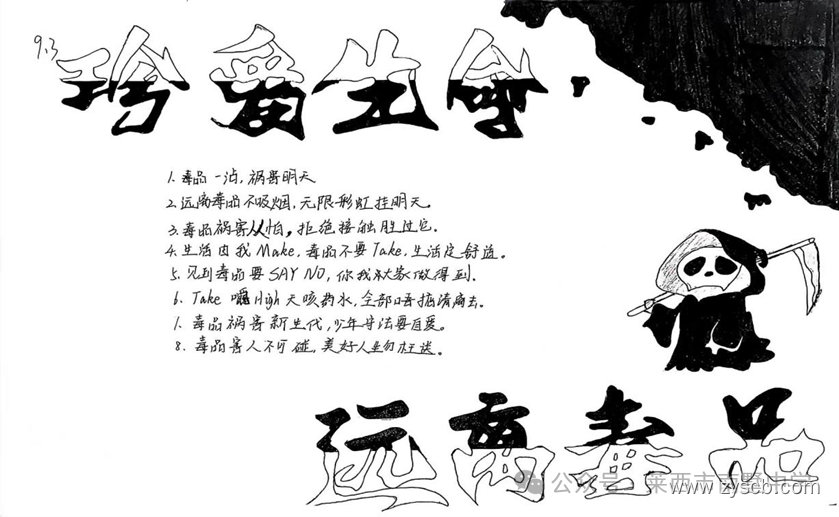 9.3
珍爱生命
1. 毒品一沾，祸害明天
2. 远离毒品不吸烟，无限彩虹挂明天。
3. 毒品祸害人人怕，拒绝接触胜过它。
4. 生活由我Make，毒品不要Take，生活定舒适。
5. 见到毒品要SAY NO，你我大家做得到。
6. Take 嗰High天咳药水，全部唔掂清痛去。
1. 毒品祸害新生代，少年守法要自爱。
8. 毒品害人不可碰，美好人生勿枉送。
远离毒品
公众号·莱西市西野中学
www.zyscbt.com